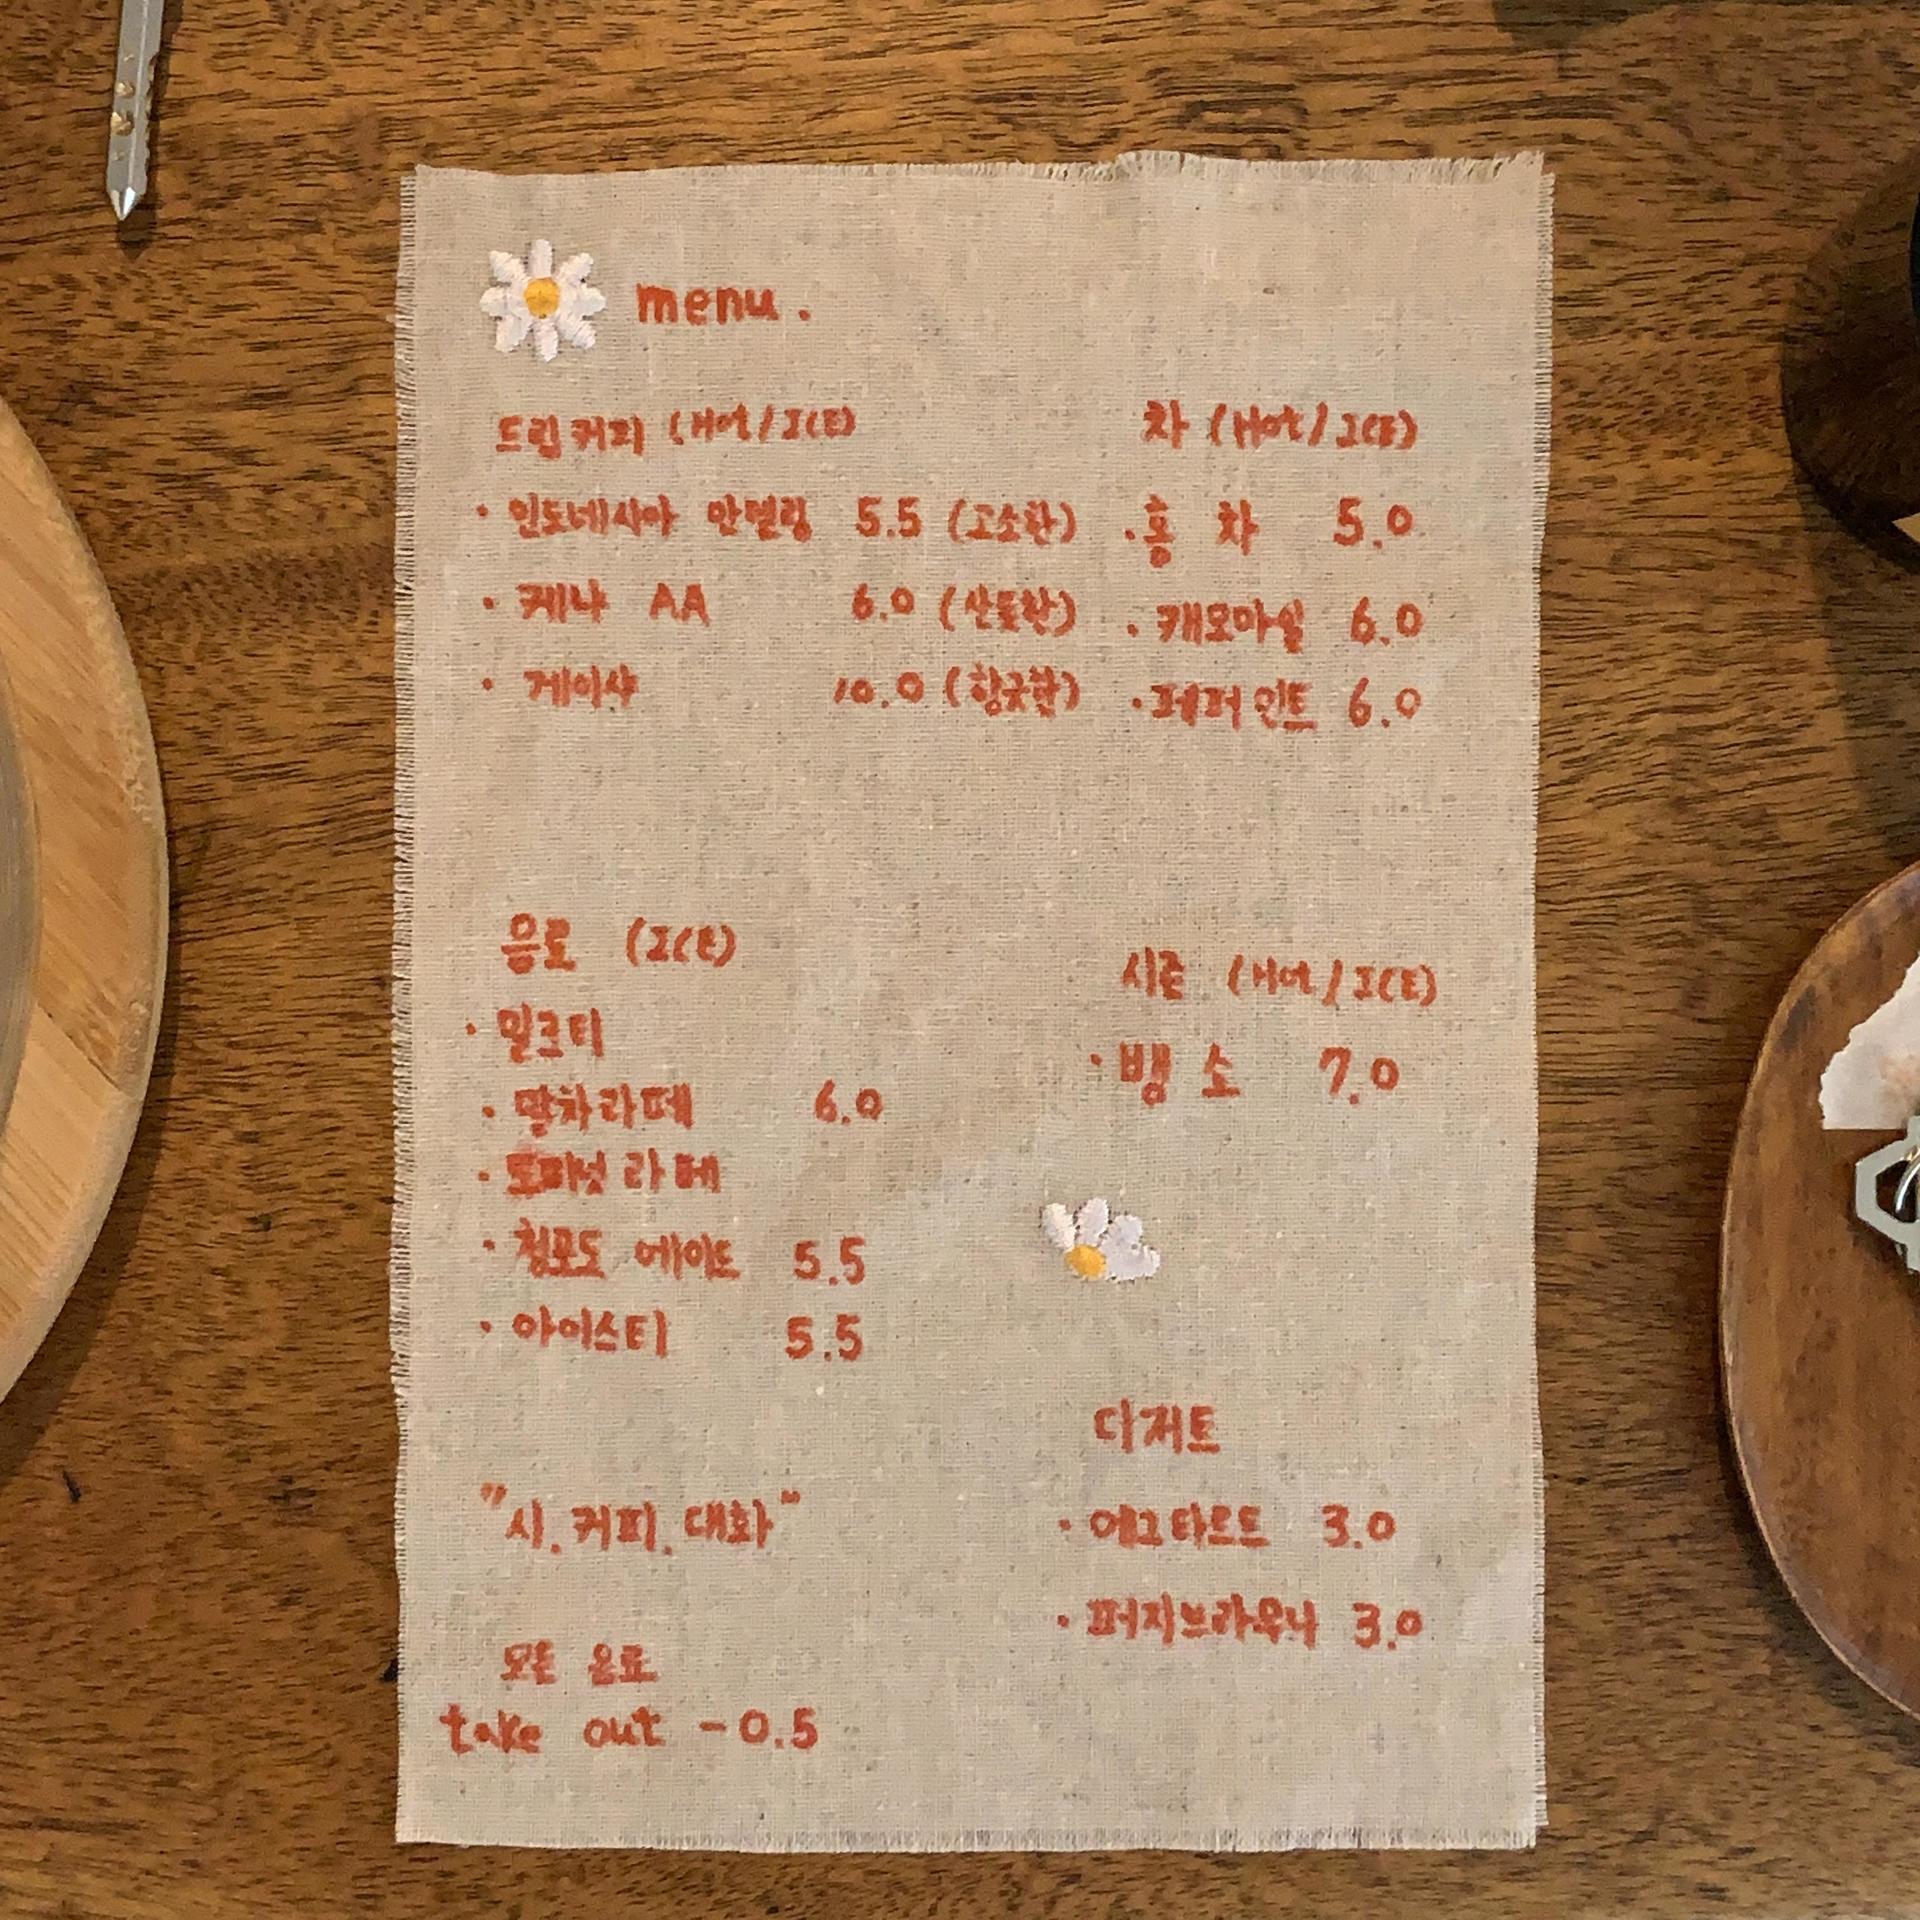 menu.
드립커피 (Hot/ICE)
· 인도네시아 만델링 5.5 (고소한)
· 케냐 AA 6.0 (산뜻한)
· 게이샤 10.0 (향긋한)
차 (Hot/ICE)
· 홍 차 5.0
· 캐모마일 6.0
· 페퍼민트 6.0
음료 (ICE)
· 밀크티
· 말차라떼 6.0
· 토피넛라떼
· 청포도 에이드 5.5
· 아이스티 5.5
시즌 (Hot/ICE)
· 뱅 쇼 7.0
디저트
· 에그타르트 3.0
· 퍼지브라우니 3.0
"시. 커피. 대화"
모든 음료
take out -0.5